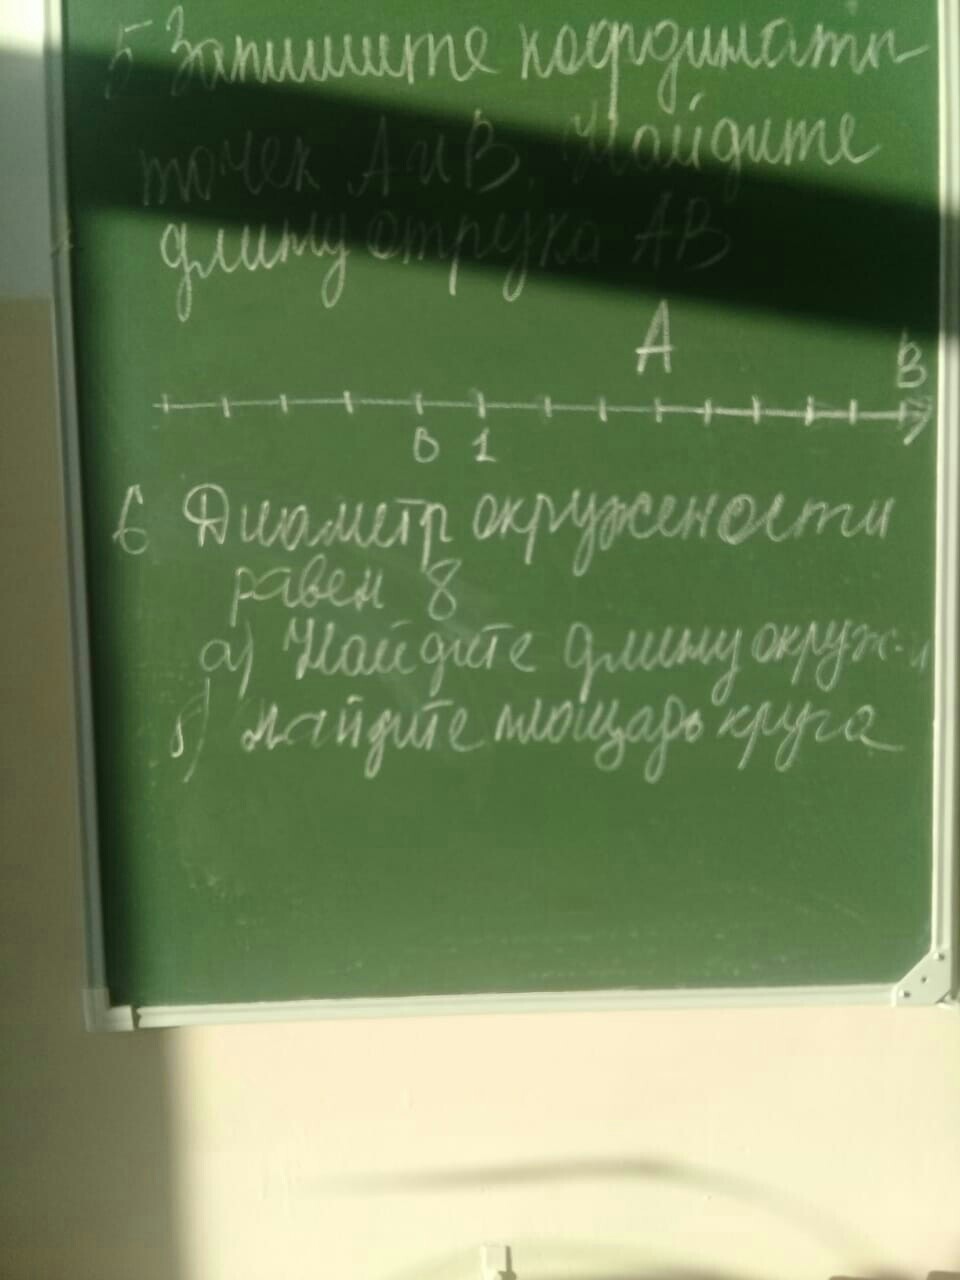 5 Запишите координаты
точек А и В. Найдите
длину отрезка АВ
А
В
0 1
6 Диаметр окружености
равен 8
а) Найдите длину окруж-и
б) найдите площадь круга